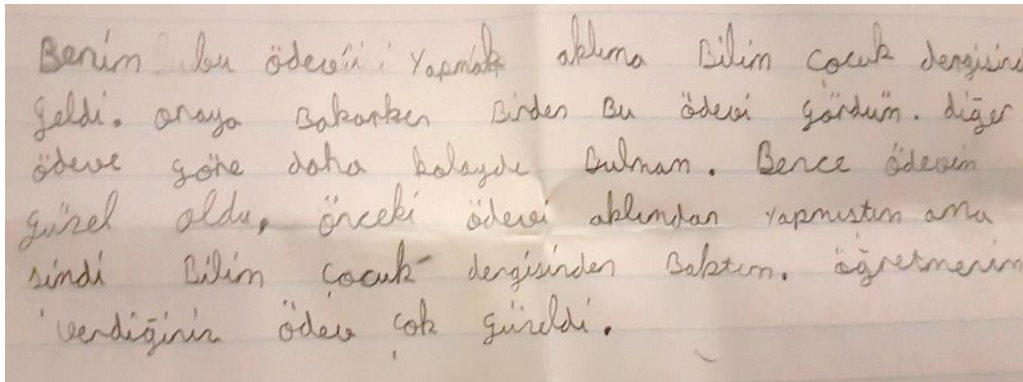 Benim bu ödevi yapmak aklıma Bilim Çocuk dergisini
geldi. oraya Bakarken Birden Bu ödevi gördüm. diğer
ödeve göre daha kolaydı Bulmam. Bence ödevim
güzel oldu, önceki ödevi aklımdan yapmıştım ama
şindi Bilim Çocuk dergisinden Baktım. öğretmenim
verdiğiniz ödev çok güzeldi.